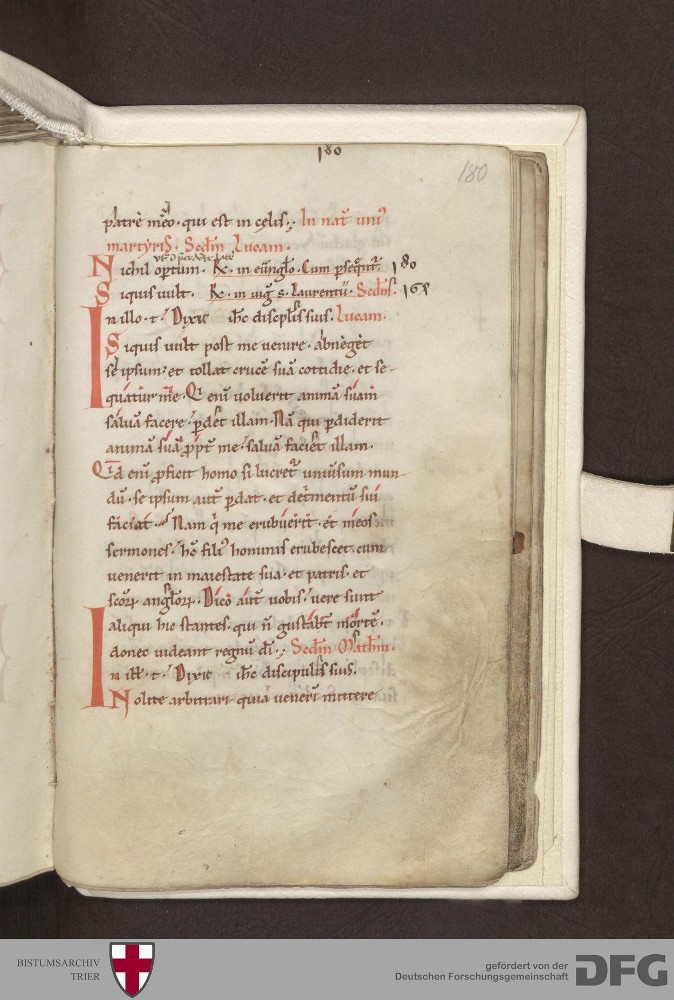 180
180
patrē mēo · qui est in celis ; In nat̄ uni᷒
martyris. Scd̄m Lucam.
Nichil optum . R̄c. in euāgl̄o. Cum ꝑseq̄nt̄. 180
Siquis uult . R̄c. in uiḡ s. Laurentii. Scd̄m. 168
In illo · t · Dixit ih̄c discipl̄is suis. Lucam.
Siquis uult post me uenire · abneget
se ipsum : et tollat crucē suā cottidie · et se-
quatur me · Qi eni᷒ uoluerit animā suam
saluā facere · ꝑdet illam · Nā qui ꝑdiderit
animā suā ꝓpt̄ me · saluā faciet illam ·
Qid eni᷒ ꝓficit homo si lucret᷒ uniu᷒sum mun-
dū · se ipsum aut̄ ꝑdat · et det᷒mentū sui
faciat · Nam q̇ me erubuerit · et meos
sermones · hc̄ fili᷒ hominis erubescet · cum
uenerit in maiestate sua · et patris · et
sc̄orꝝ angl̄orꝝ · Dico aut̄ uobis · uere sunt
aliqui hic stantes · qui n̄ gustabt̄ mortē ·
donec uideant regnū dī · ; Scd̄m Math̄m ·
In ill̄ · t · Dixit ih̄c discipulis suis.
Nolite arbitrari · quia ueneri᷒ mittere
BISTUMSARCHIV
TRIER
gefördert von der
Deutschen Forschungsgemeinschaft
DFG